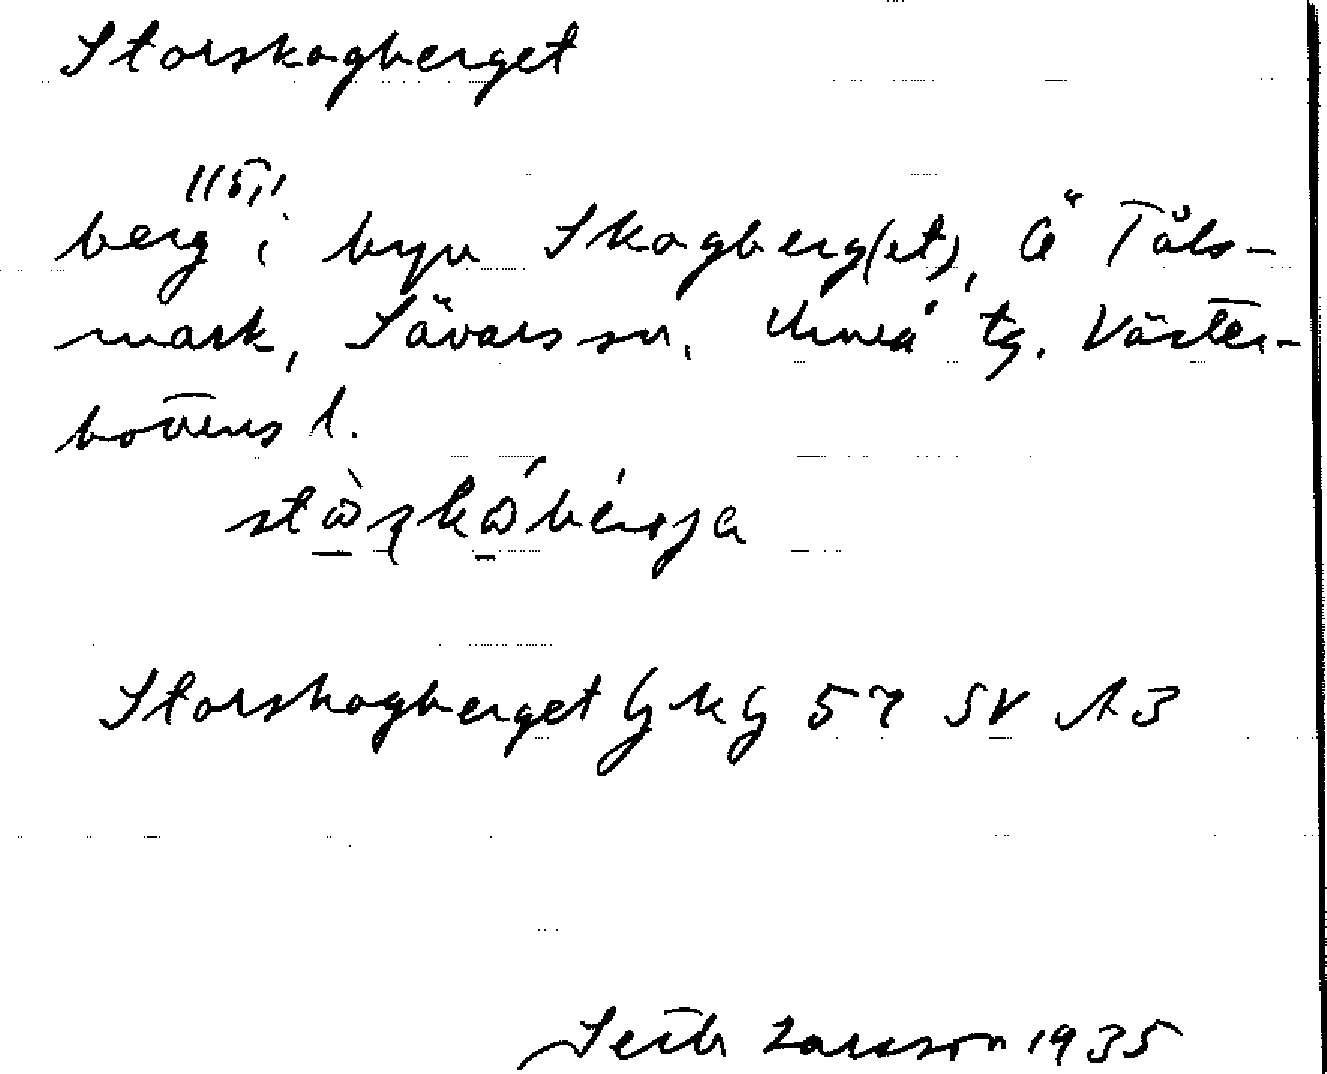 Storskogberget
115,1
berg i byn Skogberg(et), Ö Täls-
mark, Sävars sn. Umeå tg. Väster-
bottens l.
Storskogberget GKG 57 SV A3
Seth Larsson 1935